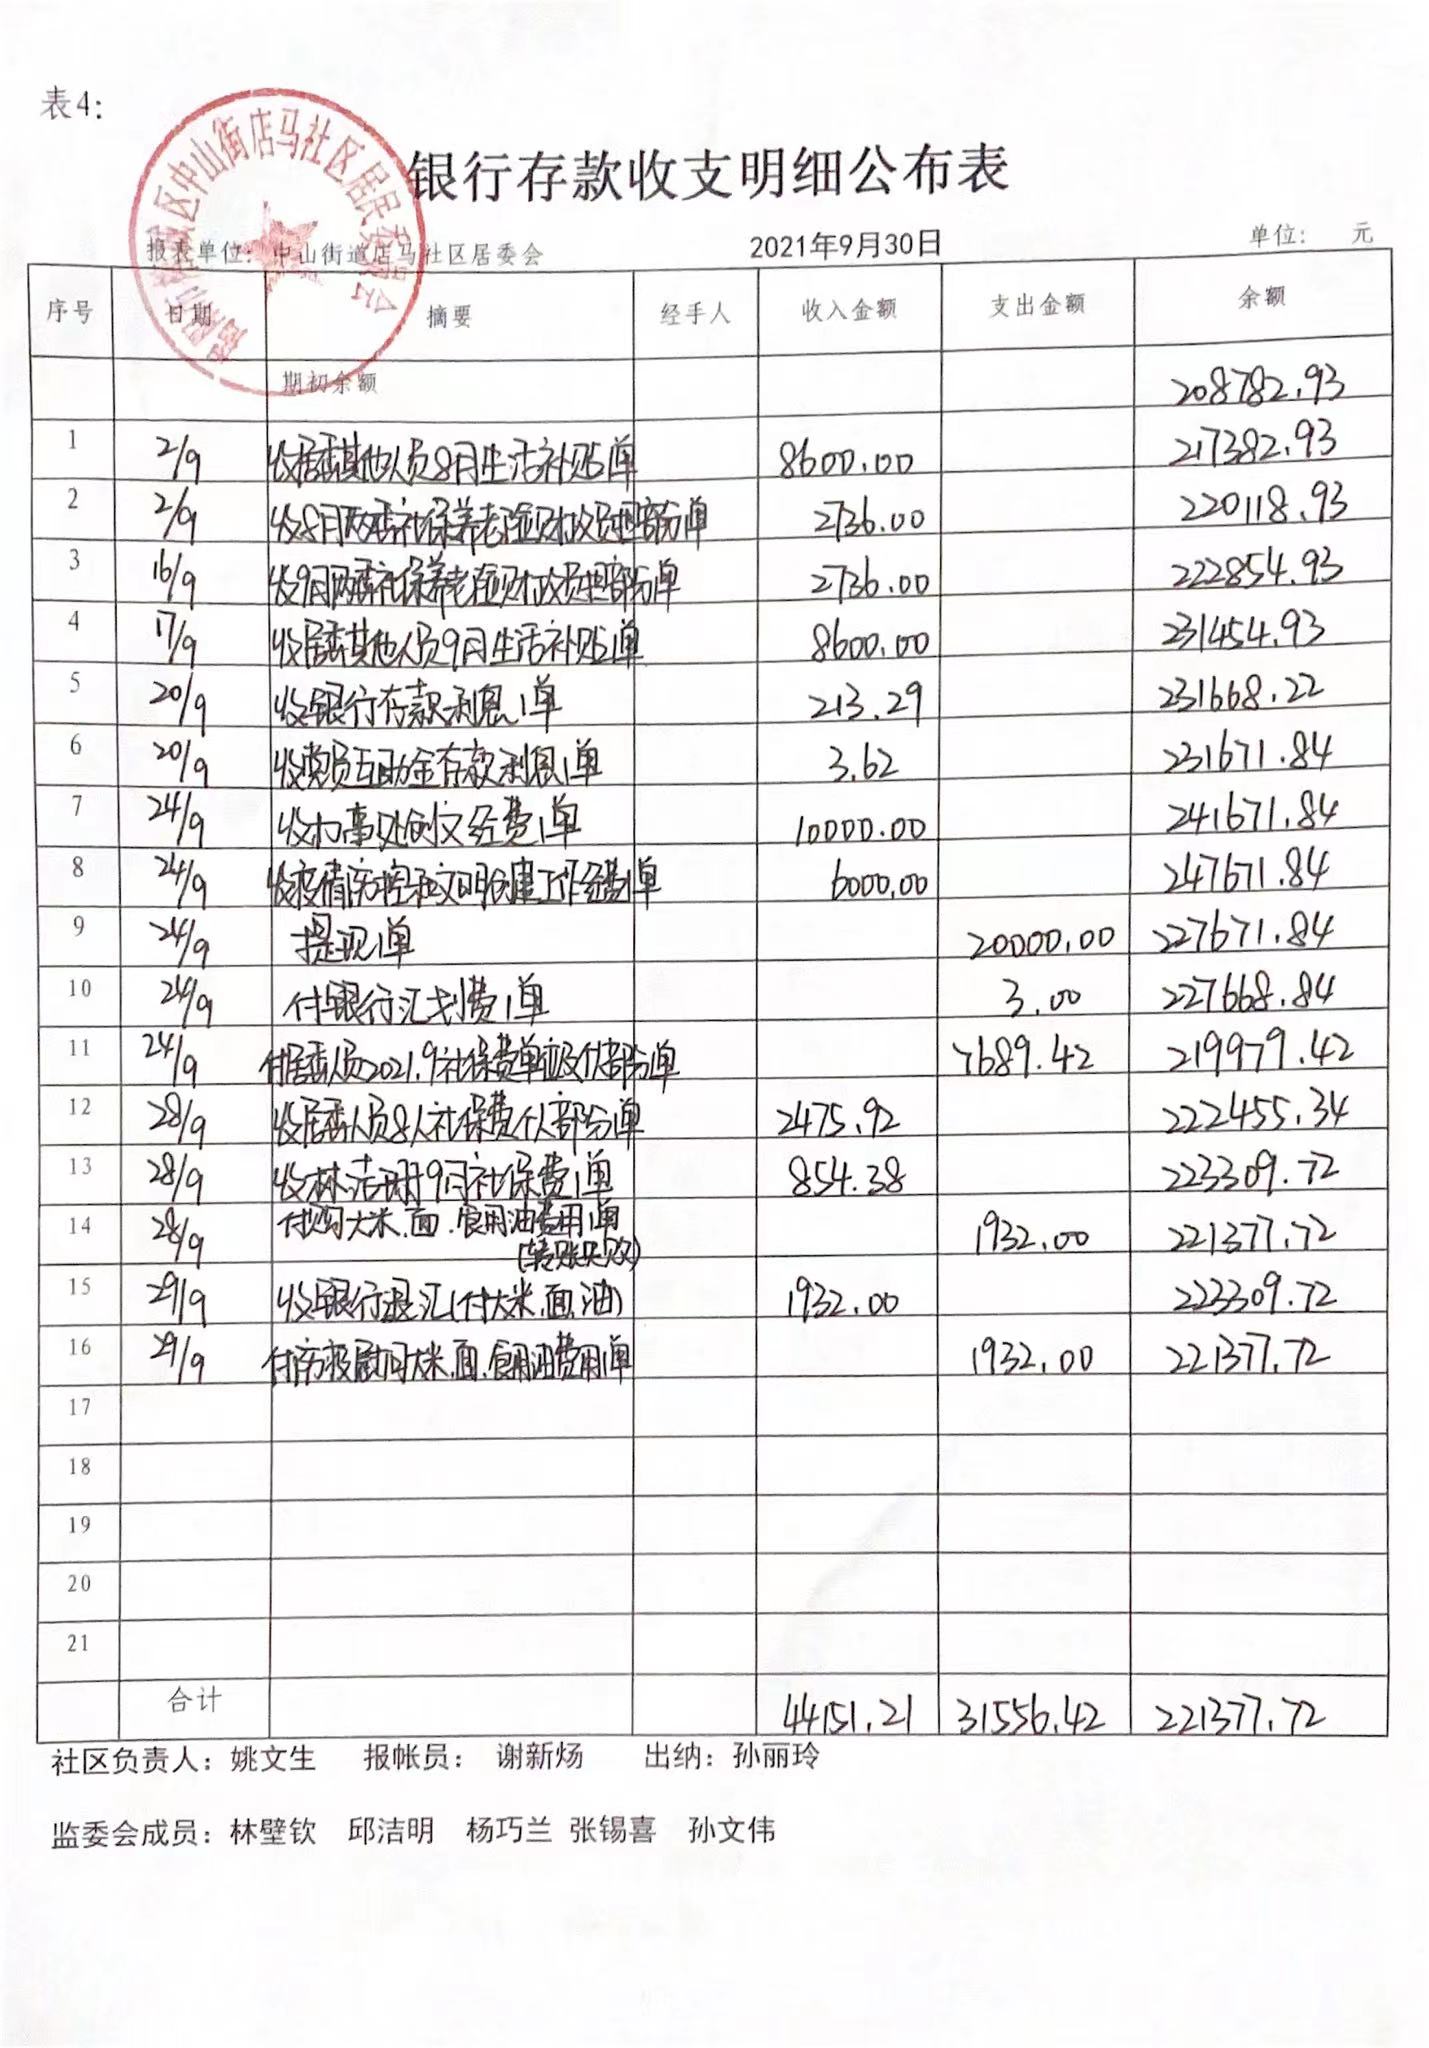 表4：
揭阳市榕城区中山街店马社区居民委员会
银行存款收支明细公布表
报表单位：中山街道店马社区居委会 2021年9月30日 单位： 元
序号 日期 摘要 经手人 收入金额 支出金额 余额
期初余额 208782.93
1 2/9 收居委其他人员8月生活补贴1单 8600.00 217382.93
2 2/9 收8月两委社保养老险财政负担部分1单 2736.00 220118.93
3 16/9 收9月两委社保养老险财政负担部分1单 2736.00 222854.93
4 17/9 收居委其他人员9月生活补贴1单 8600.00 231454.93
5 20/9 收银行存款利息1单 213.29 231668.22
6 20/9 收党员互助金存款利息1单 3.62 231671.84
7 24/9 收办事处创文经费1单 10000.00 241671.84
8 24/9 收疫情防控和文明创建工作经费1单 6000.00 247671.84
9 24/9 提现1单 20000.00 227671.84
10 24/9 付银行汇划费1单 3.00 227668.84
11 24/9 付居委人员2021.9社保费单位及个人部分1单 7689.42 219979.42
12 28/9 收居委人员8人社保费个人部分1单 2475.92 222455.34
13 28/9 收林洁珊9月社保费1单 854.38 223309.72
14 28/9 付购大米.面.食用油费用1单 1932.00 221377.72
(转账失败)
15 29/9 收银行退汇(付大米.面.油) 1932.00 223309.72
16 29/9 付慰问大米.面.食用油费用1单 1932.00 221377.72
17
18
19
20
21
合计 44151.21 31556.42 221377.72
社区负责人：姚文生 报帐员： 谢新炀 出纳：孙丽玲
监委会成员：林壁钦 邱洁明 杨巧兰 张锡喜 孙文伟